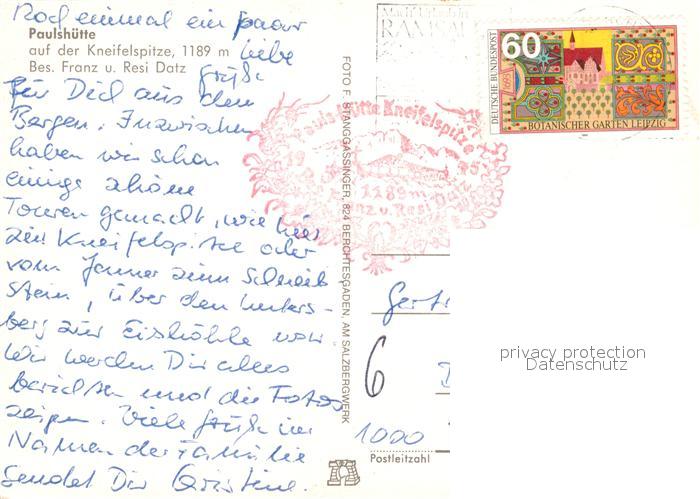 Noch einmal ein paar
liebe
Grüße
Paulshütte
auf der Kneifelspitze, 1189 m
Bes. Franz u. Resi Datz
für Dich aus den
Bergen. Inzwischen
haben wir schon
einige schöne
Touren gemacht, wie hier
zur Kneifelspitze oder
vom Jenner zum Schneib
stein, über den Unters-
berg zur Eishöhle usw.
Wir werden Dir alles
berichten und die Fotos
zeigen. Viele Grüße im
Namen der Familie
sendet Dir Christine.
FOTO F. STANGGASSINGER, 824 BERCHTESGADEN, AM SALZBERGWERK
RAMSAU
Paulshütte Kneifelspitze
1189 m
Franz u. Resi Datz
60
DEUTSCHE BUNDESPOST
1992
BOTANISCHER GARTEN LEIPZIG
6
1000
Postleitzahl
privacy protection
Datenschutz